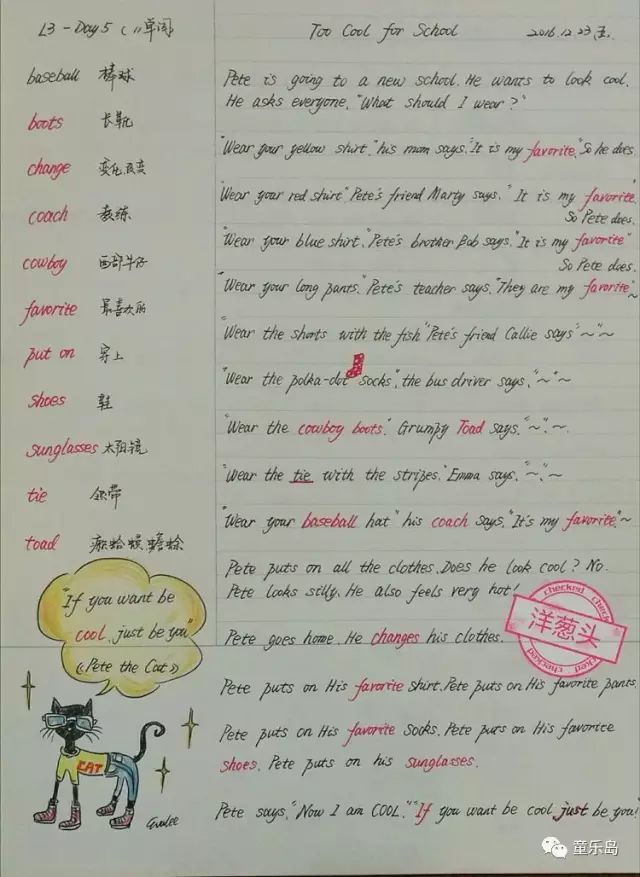 L3 - Day 5 (11单词)
Too Cool for School
2016.12.23 五.
baseball 棒球
boots 长靴
change 变化,改变
coach 教练
cowboy 西部牛仔
favorite 最喜欢的
put on 穿上
shoes 鞋
sunglasses 太阳镜
tie 领带
toad 癞蛤蟆 蟾蜍
"If you want be
cool, just be you"
《Pete the Cat》
CAT
Pete is going to a new school. He wants to look cool.
He asks everyone, "What should I wear?"
"Wear your yellow shirt," his mom says. "It is my favorite." So he does.
"Wear your red shirt" Pete's friend Marty says. "It is my favorite."
So Pete does.
"Wear your blue shirt," Pete's brother Bob says. "It is my favorite"
So Pete does.
"Wear your long pants," Pete's teacher says. "They are my favorite" ~
"Wear the shorts with the fish" Pete's friend Callie says "~" ~
"Wear the polka-dot socks", the bus driver says, "~" ~
"Wear the cowboy boots." Grumpy Toad says. "~". ~.
"Wear the tie with the stripes." Emma says, "~". ~
"Wear your baseball hat" his coach says. "It's my favorite." ~
Pete puts on all the clothes. Does he look cool? No.
Pete looks silly. He also feels very hot!
Pete goes home. He changes his clothes.
Pete puts on His favorite shirt. Pete puts on His favorite pants.
Pete puts on His favorite socks. Pete puts on His favorite
shoes. Pete puts on his sunglasses.
Pete says, "Now I am COOL." "If you want be cool, just be you!"
checked
洋葱头
童乐岛